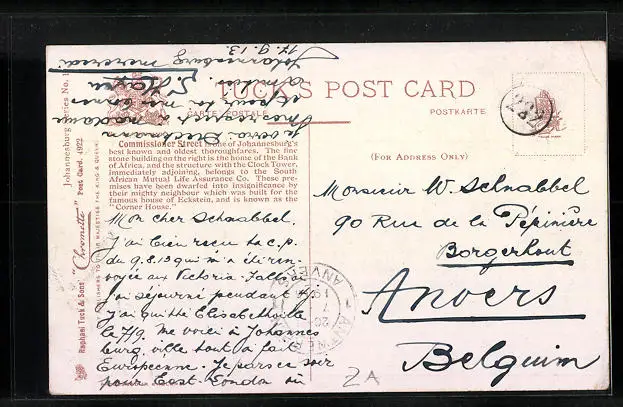 TUCK'S POST CARD
CARTE POSTALE
POSTKARTE
(FOR ADDRESS ONLY)
Johannesburg Series No. 1
Post Card 4922
"Chromette"
PUBLISHERS TO THEIR MAJESTIES THE KING & QUEEN
Raphael Tuck & Sons'
Commissioner Street is one of Johannesburg's
best known and oldest thoroughfares. The fine
stone building on the right is the home of the Bank
of Africa, and the structure with the Clock Tower,
immediately adjoining, belongs to the South
African Mutual Life Assurance Co. These pre-
mises have been dwarfed into insignificance by
their mighty neighbour which was built for the
famous house of Eckstein, and is known as the
"Corner House."
Mon cher Schnabbel,
J'ai bien reçu ta c.p.
du 9.8.13 qui m'a été ren-
voyée aux Victoria-Falls où
j'ai séjourné pendant
J'ai quitté Elisabethville
le 7/9 me voici à Johannes
burg, ville tout à fait
Européenne. Je pars ce soir
pour East-London où
je verai
madame
et pour
amitiés
Johannesburg mercredi
17.9.13.
Monsieur W. Schnabbel
90 Rue de la Pépinière
Borgerhout
Anvers
Belguim
ANVERS
2A